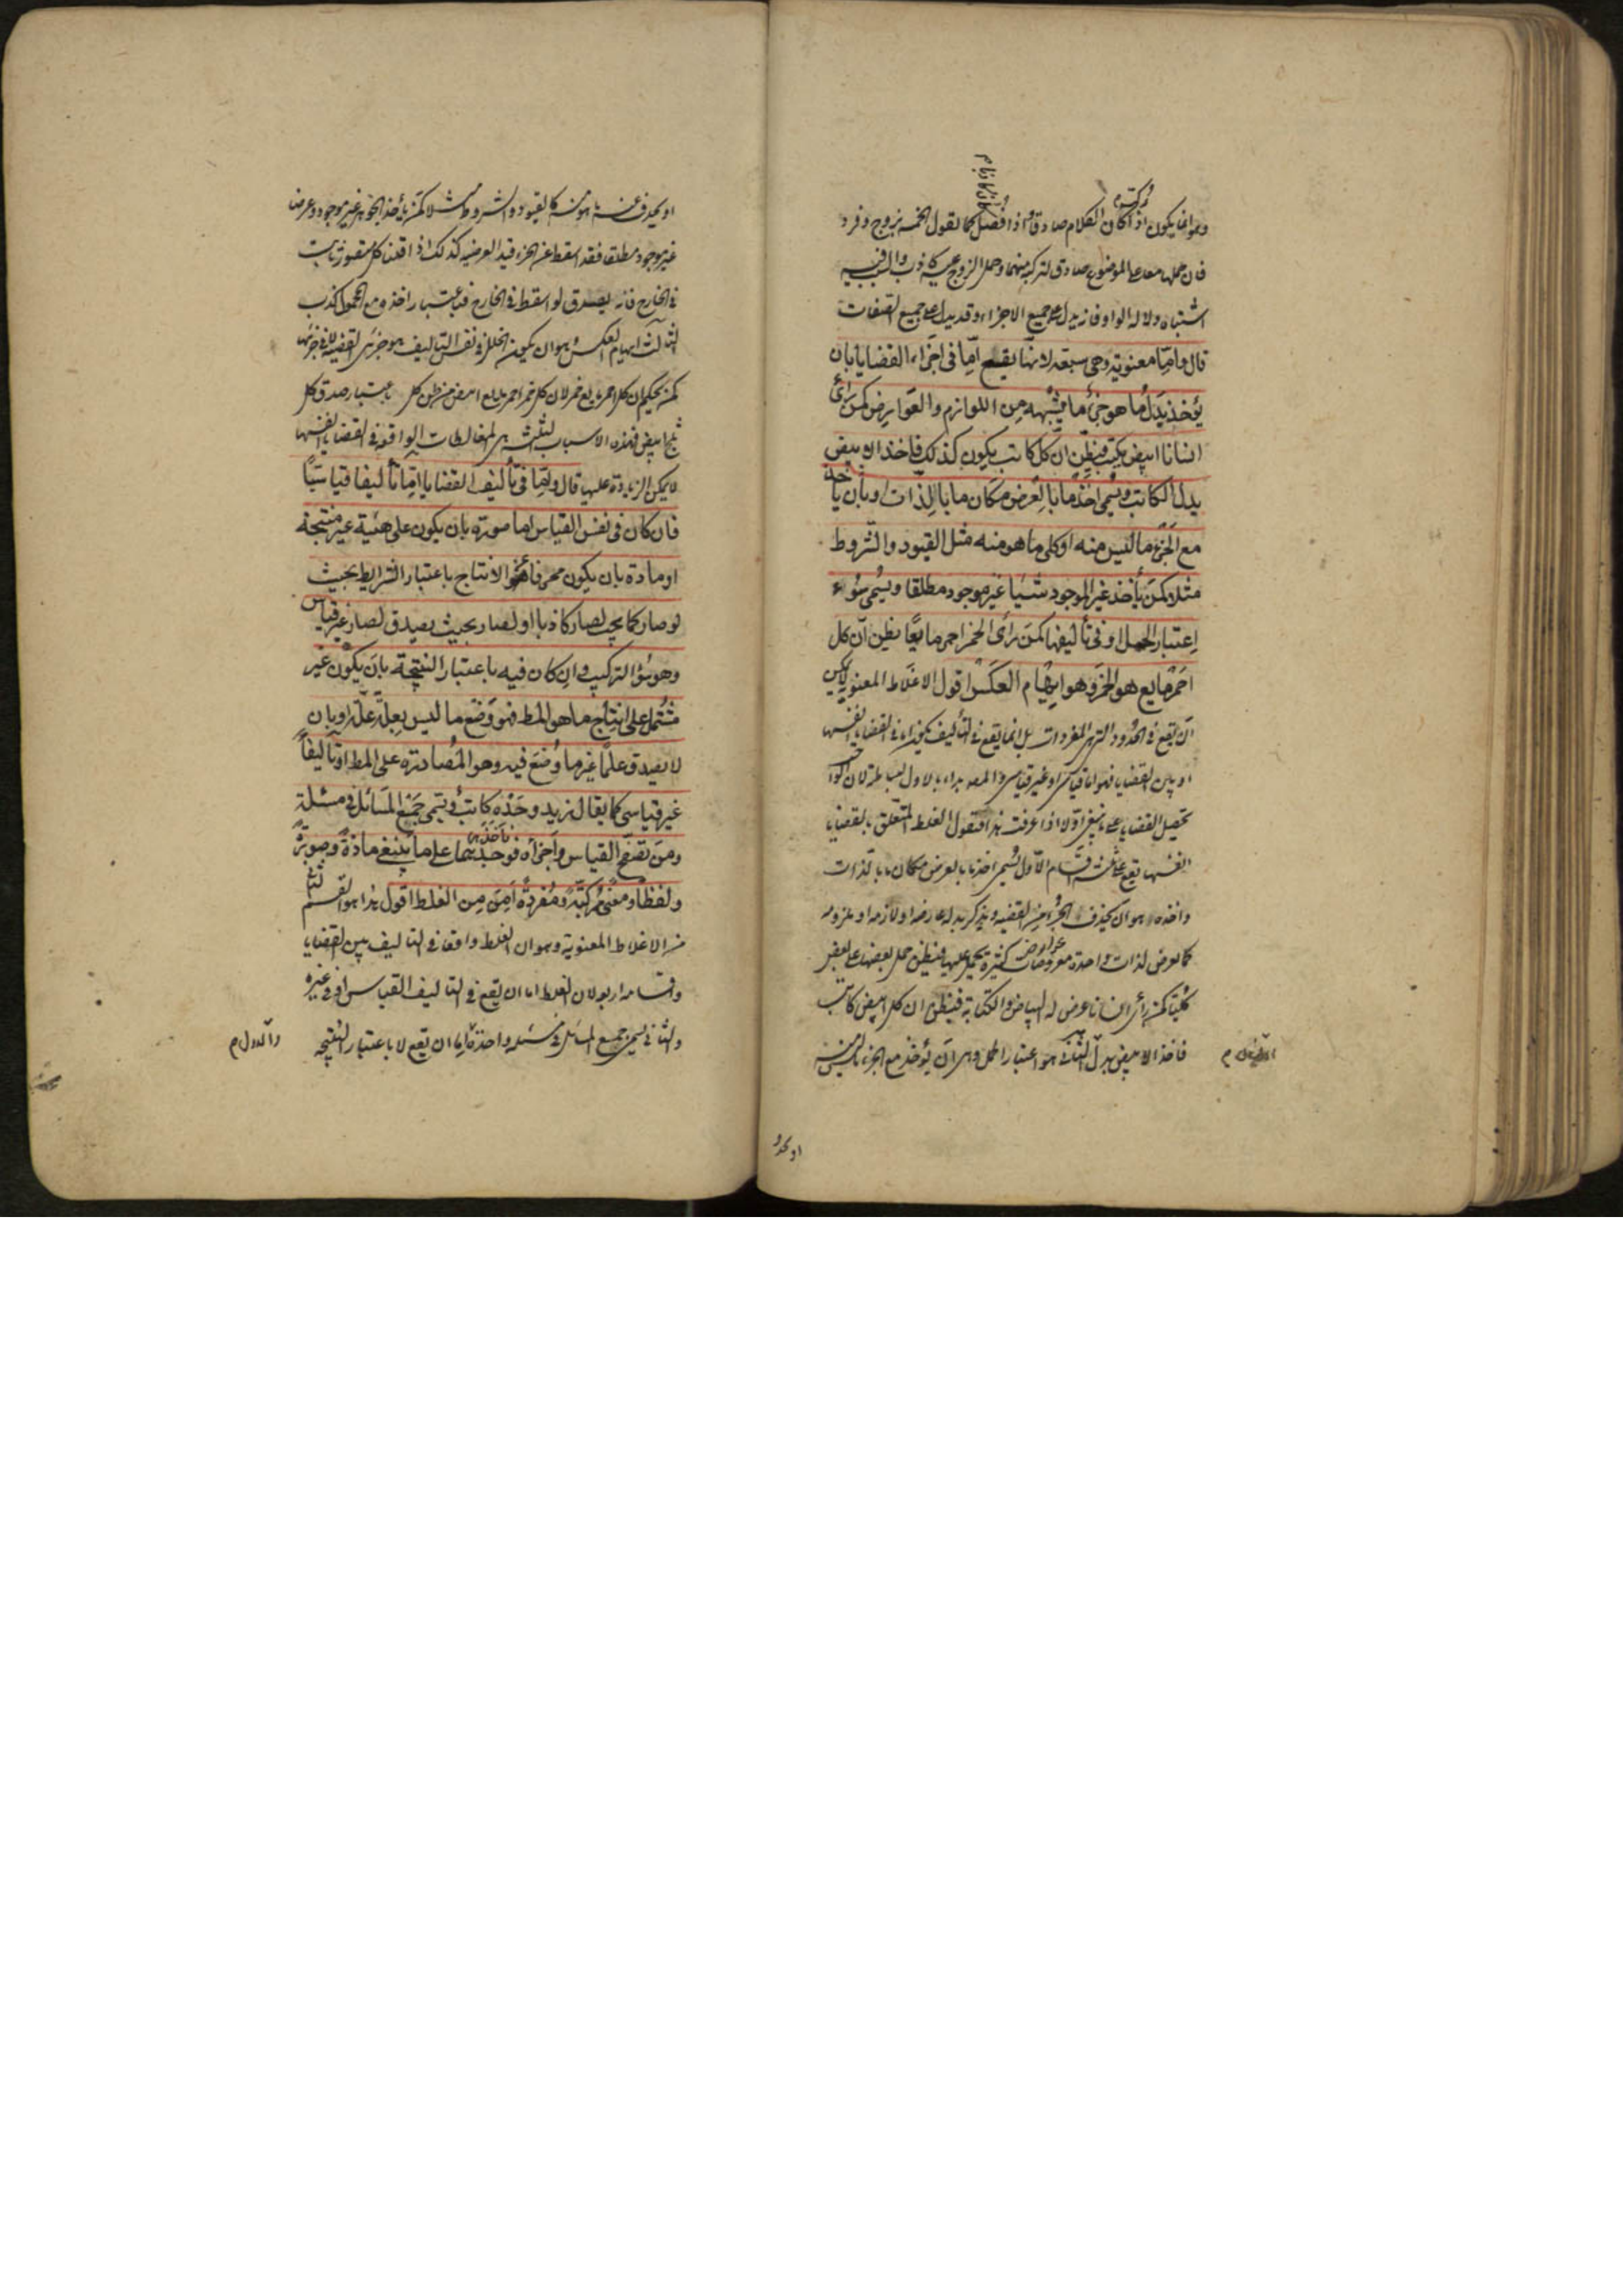 وهو انما يكون اذا كان الكلام صادقا واذا فصل كما تقول الخمسة زوج وفرد
فان حملهما معا على الموضوع صادق لتركبه منهما وحمل الزوج عليه كاذب والسبب فيه
اشتباه دلالة الواو فانه يدل على جميع الاجزاء وقد يدل على جميع الصفات
قال وامّا معنوية وهى سبعة لانها يقع امّا فى اجزاء القضايا بان
يؤخذ بدل ما هو جزء ما يشبهه من اللوازم والعوارض كمن رأى
انسانا ابيض يكتب فظن ان كل كاتب يكون كذلك فاخذ الابيض
بدل الكاتب ويسمى اخذ ما بالعرض مكان ما بالذات او بان ياخذ
مع الجزء ما ليس منه او كلى ما هو منه مثل القيود والشروط
مثلا كمن يأخذ غير الموجود شيئا غير موجود مطلقا ويسمى سوء
اعتبار الحمل او فى تأليفها كمن رأى الخمر احمر مايعا يظن ان كل
احمر مايع هو الخمر وهو ايهام العكس اقول الاغلاط المعنوية ليس
ان يقع فى الحدود التى هى المفردات بل انما يقع فى التأليف فيكون اما فى القضايا انفسها
او بين القضايا فهو اما قياسى او غير قياسى
تحصيل القضايا على ما ينبغى اولا اذا عرفت هذا فنقول الغلط المتعلق بالقضايا
انفسها يقع على ثلثة اقسام الاول يسمى اخذ ما بالعرض مكان ما بالذات
واخذه هو ان يحذف الجزء من القضية ويذكر بدله عارضه او لازمه او ملزومه
كما يعرض لذات واحدة معروضات كثيرة يحمل عليها فيظن حمل بعضها على بعض
كليا كمن رأى انسانا عرض له البياض والكتابة فيظن ان كل ابيض كاتب
فاخذ الابيض بدل الثانى هو اعتبار الحمل وهو ان يؤخذ مع الجزء ما ليس منه
او يحذف عنه ما هو منه كالقيود والشروط مثلا كمن ياخذ الجوهر غير موجود وعرضا
غير موجود مطلقا فقد اسقط عن الجزء قيد العرضية كذلك اذا قلنا كل متصور ثابت
فى الخارج فانه يصدق لو اسقط فى الخارج فباعتبار اخذه مع المحمول كذب
الثالث ايهام العكس وهو ان يكون الخلل فى نفس التأليف هو جزئى القضية لا فى جزئها
كمن يحكم ان كل احمر مايع خمر لان كل خمر احمر مايع
ثلج ابيض فهذه الاسباب الثلثة هى المغالطات الواقعة فى القضايا انفسها
لا يمكن الزيادة عليها قال وامّا فى تأليف القضايا امّا تأليفا قياسيّا
فان كان فى نفس القياس اما صورة بان يكون على هيئة غير منتجة
او مادة بان يكون محرفا عن الانتاج باعتبار الشرايط بحيث
لو صار كما يجب لصار كاذبا او لصار بحيث يصدق لصار غير قياس
وهو سوء التركيب وان كان فيه باعتبار النتيجة بان يكون غير
مشتمل على انتاج ما هو المط فهو وضع ما ليس بعلة علة او بان
لا يصدق علما غير ما وضع فيه وهو المصادرة على المط او تأليفا
غير قياسى كما يقال زيد وحده كاتب ويسمى جمع المسائل فى مسئلة
ومن تصفح القياس واجزاه فوجدهما على ما ينبغى مادة وصورة
ولفظا ومعنى مركبة ومفردة امن من الغلط اقول هذا هو القسم الثانى
من الاغلاط المعنوية وهو ان الغلط واقعا فى التأليف بين القضايا
واقسامه اربع لان الغلط اما ان يقع فى التأليف القياسى او فى غيره
والثانى يسمى جمع المسائل فى مسئلة واحدة اما ان يقع لا باعتبار النتيجة
والاول م